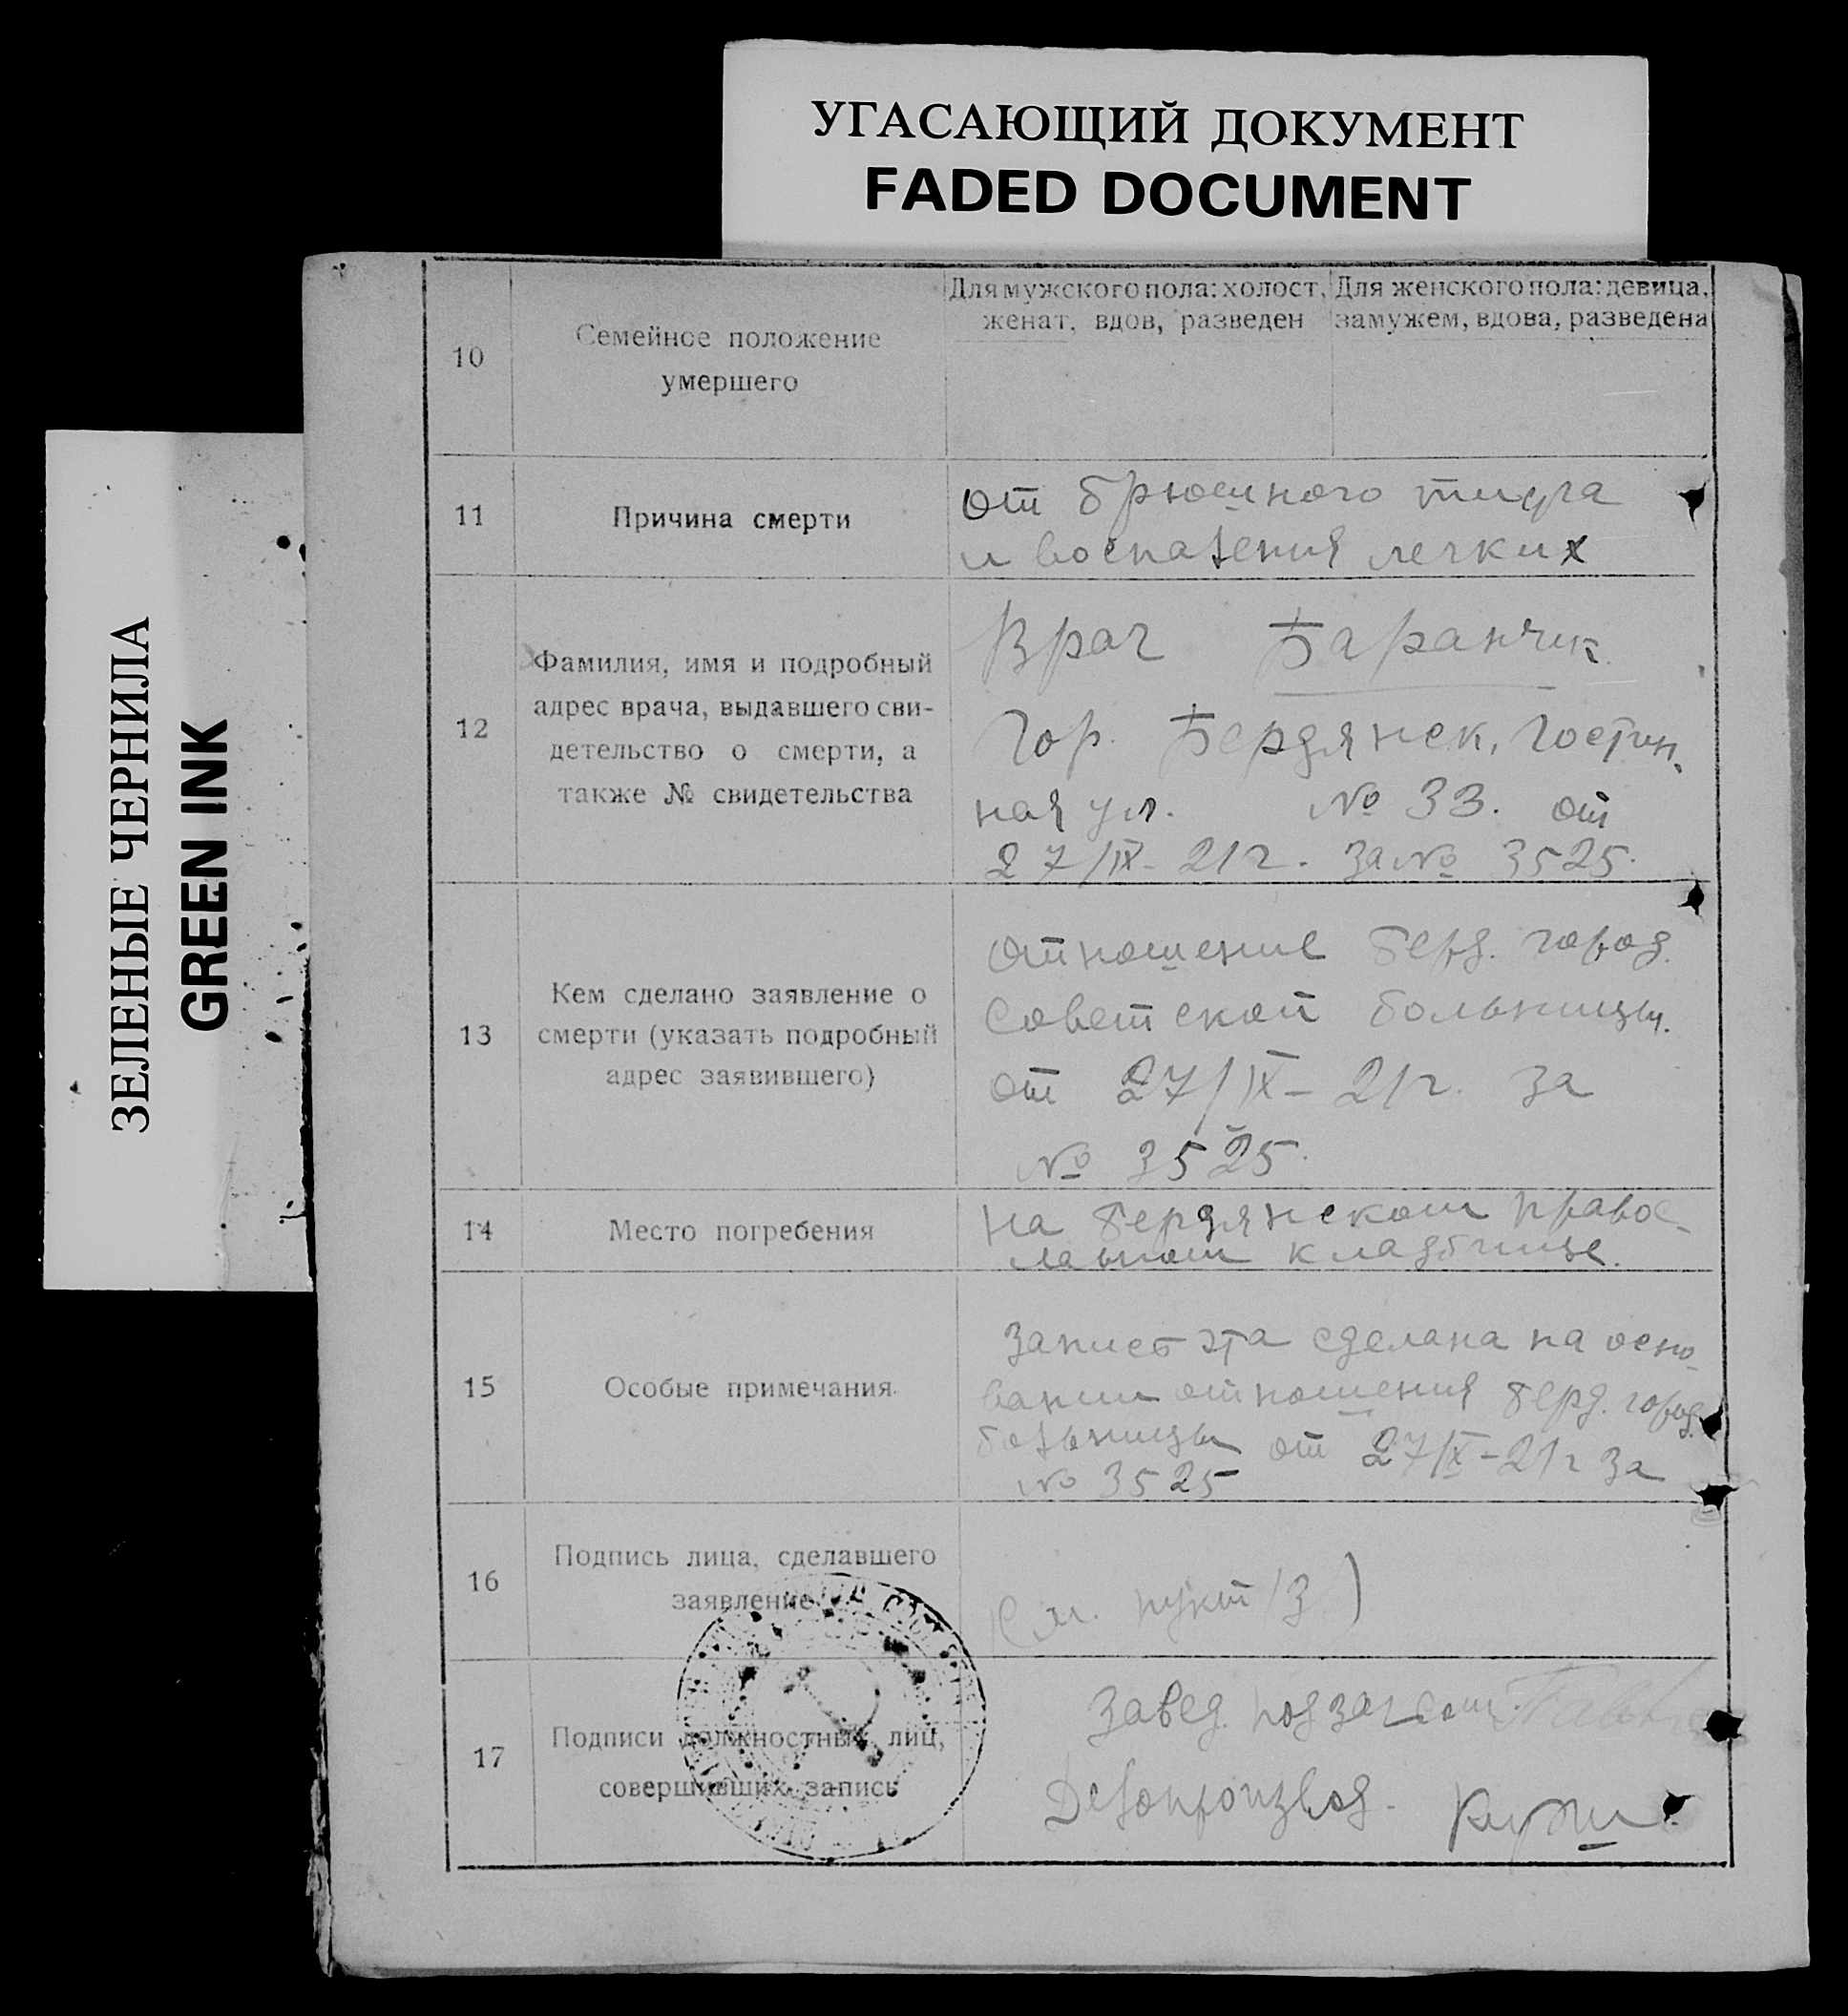 УГАСАЮЩИЙ ДОКУМЕНТ
FADED DOCUMENT
ЗЕЛЕНЫЕ ЧЕРНИЛА
GREEN INK
10
Семейное положение
умершего
Для мужского пола: холост,
женат, вдов, разведен
Для женского пола: девица,
замужем, вдова, разведена
11
Причина смерти
от брюшного тифа
и воспаления легких
12
Фамилия, имя и подробный
адрес врача, выдавшего сви-
детельство о смерти, а
также № свидетельства
Врач Баранчик
Гор. Бердянск, Гостин-
ная ул. № 33. от
27/IX-21г. за № 3525.
13
Кем сделано заявление о
смерти (указать подробный
адрес заявившего)
Отношение берд. город.
Советской больницы.
от 27/IX-21г. за
№ 3525.
14
Место погребения
На бердянском правос-
лавном кладбище.
15
Особые примечания
Запись эта сделана на осно-
вании отношения берд. город.
больницы от 27/IX-21г за
№ 3525
16
Подпись лица, сделавшего
заявление
(см. пункт 13)
17
Подписи должностных лиц,
совершивших запись
Завед. подзагсом
Делопроизвод.